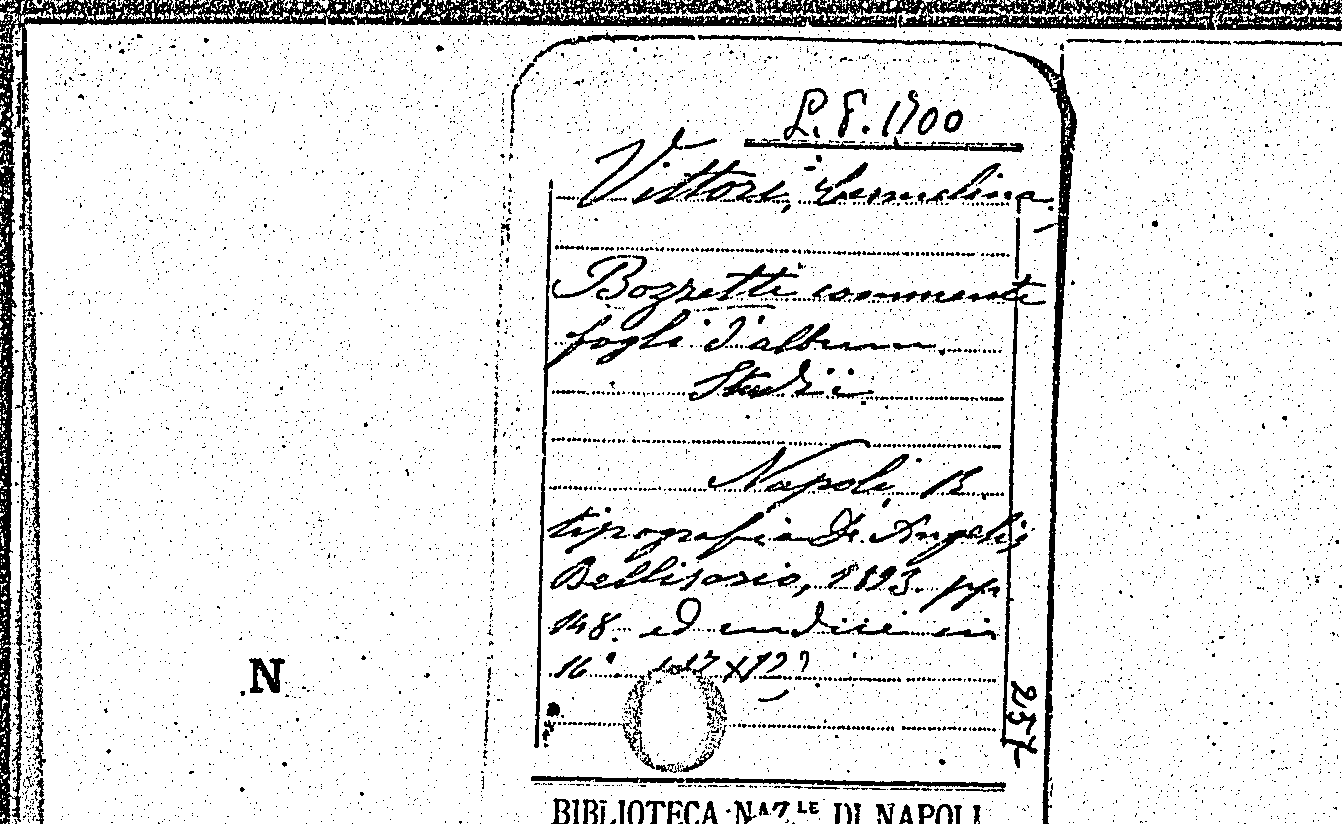 L. P. 1700
Vittori, Ermelina
Bozzetti commenti
fogli d'album
Studii
Napoli B.
tipografia De Angelis
Bellisario, 1893. pp.
148. ed indice in
16° (17 X 12)
257
N
BIBLIOTECA NAZ.LE DI NAPOLI